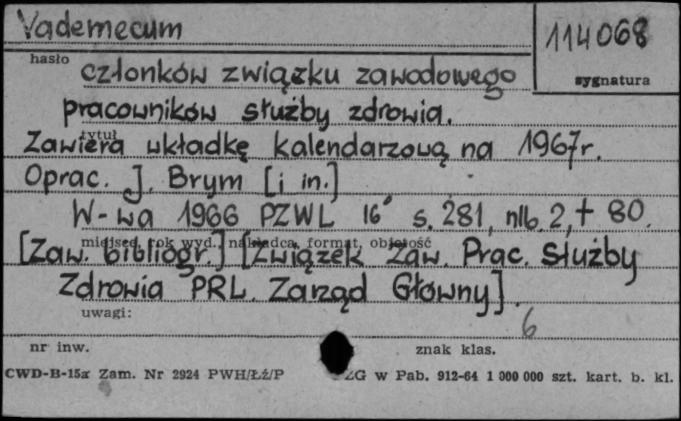 Vademecum
114068
hasło
sygnatura
członków związku zawodowego
pracowników służby zdrowia.
tytuł
Zawiera wkładkę kalendarzową na 1967r.
Oprac. J. Brym [i in.]
W-wa 1966 PZWL 16° s. 281, nlb. 2, + 80.
miejsce, rok wyd., nakładca, format, objętość
[Zaw. bibliogr.] [Związek Zaw. Prac. Służby
Zdrowia PRL. Zarząd Główny].
uwagi:
6
nr inw.
znak klas.
CWD-B-15a Zam. Nr 2924 PWH/Łź/P ZG w Pab. 912-64 1 000 000 szt. kart. b. kl.